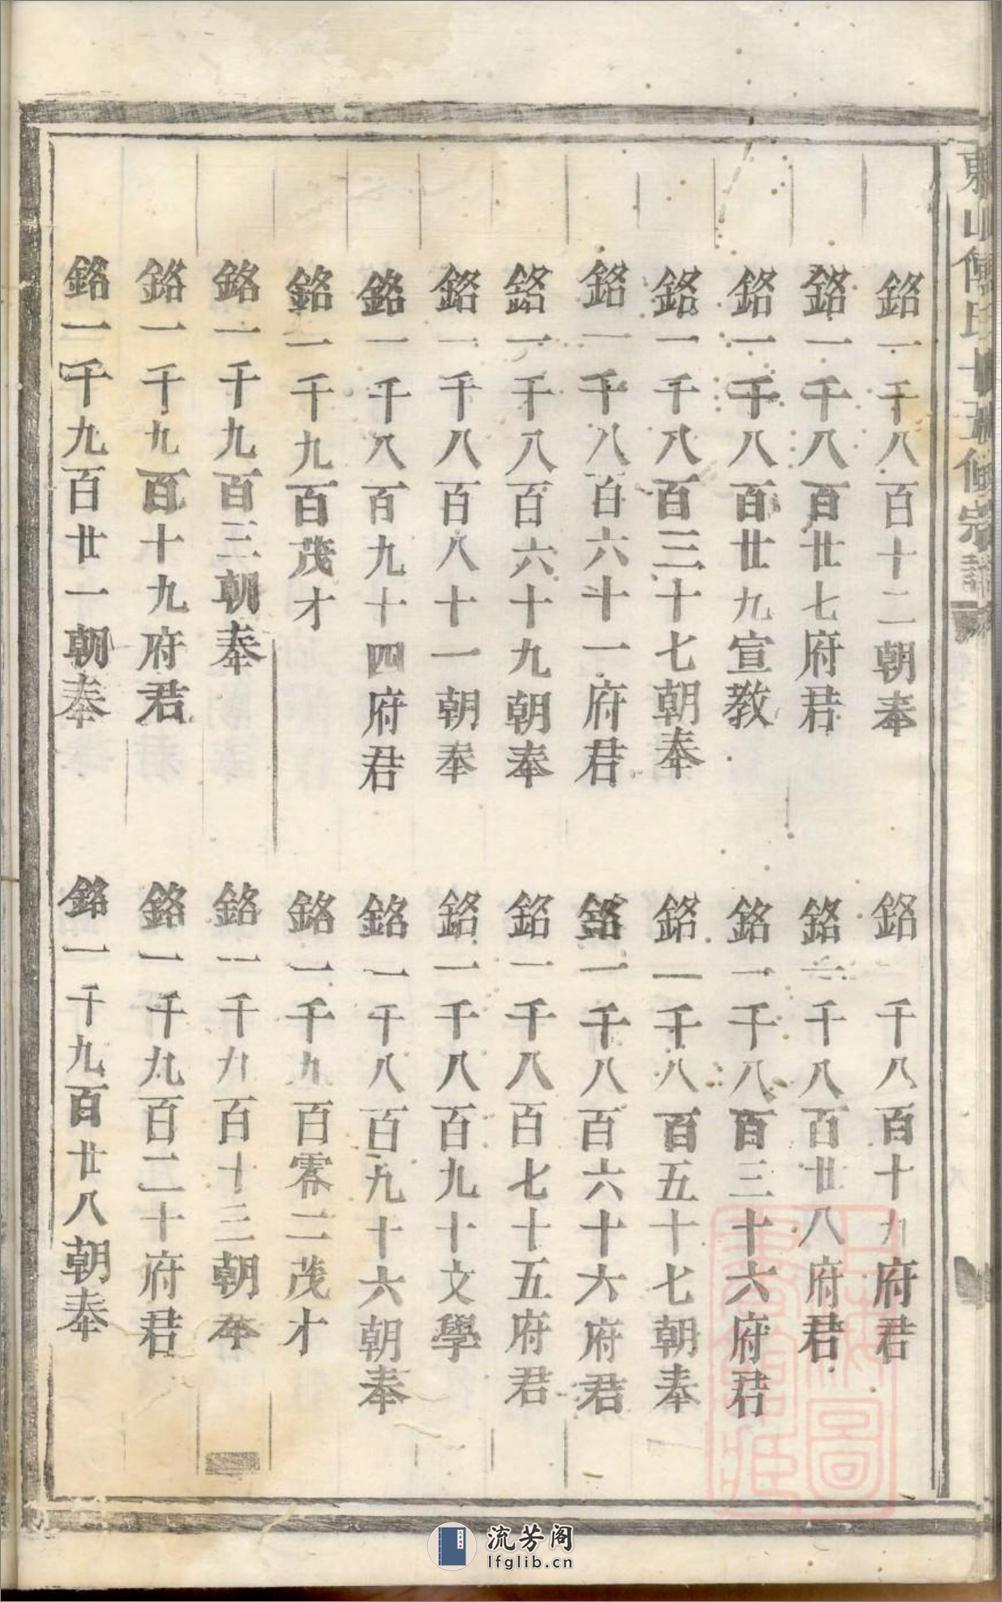 東山傅氏十五修宗譜
銘一千八百十二朝奉
銘一千八百十九府君
銘一千八百廿七府君
銘一千八百廿八府君
銘一千八百廿九宣教
銘一千八百三十六府君
銘一千八百三十七朝奉
銘一千八百五十七朝奉
銘一千八百六十一府君
銘一千八百六十六府君
銘一千八百六十九朝奉
銘一千八百七十五府君
銘一千八百八十一朝奉
銘一千八百九十文學
銘一千八百九十四府君
銘一千八百九十六朝奉
銘一千九百茂才
銘一千九百零二茂才
銘一千九百三朝奉
銘一千九百十三朝奉
銘一千九百十九府君
銘一千九百二十府君
銘一千九百廿一朝奉
銘一千九百廿八朝奉
上海圖書館藏
流芳阁
lfglib.cn